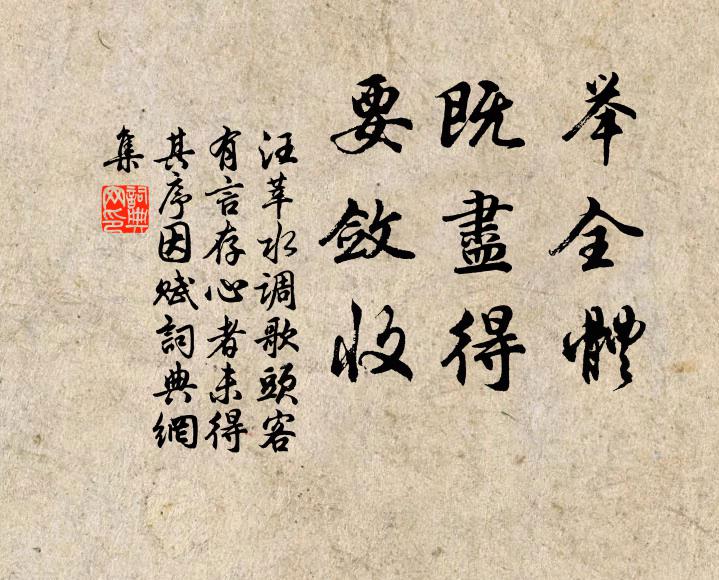 举全體
既盡得
要敛收
汪莘水调歌頭客
有言存心者未得
其序因赋詞典網
集
詞典網印